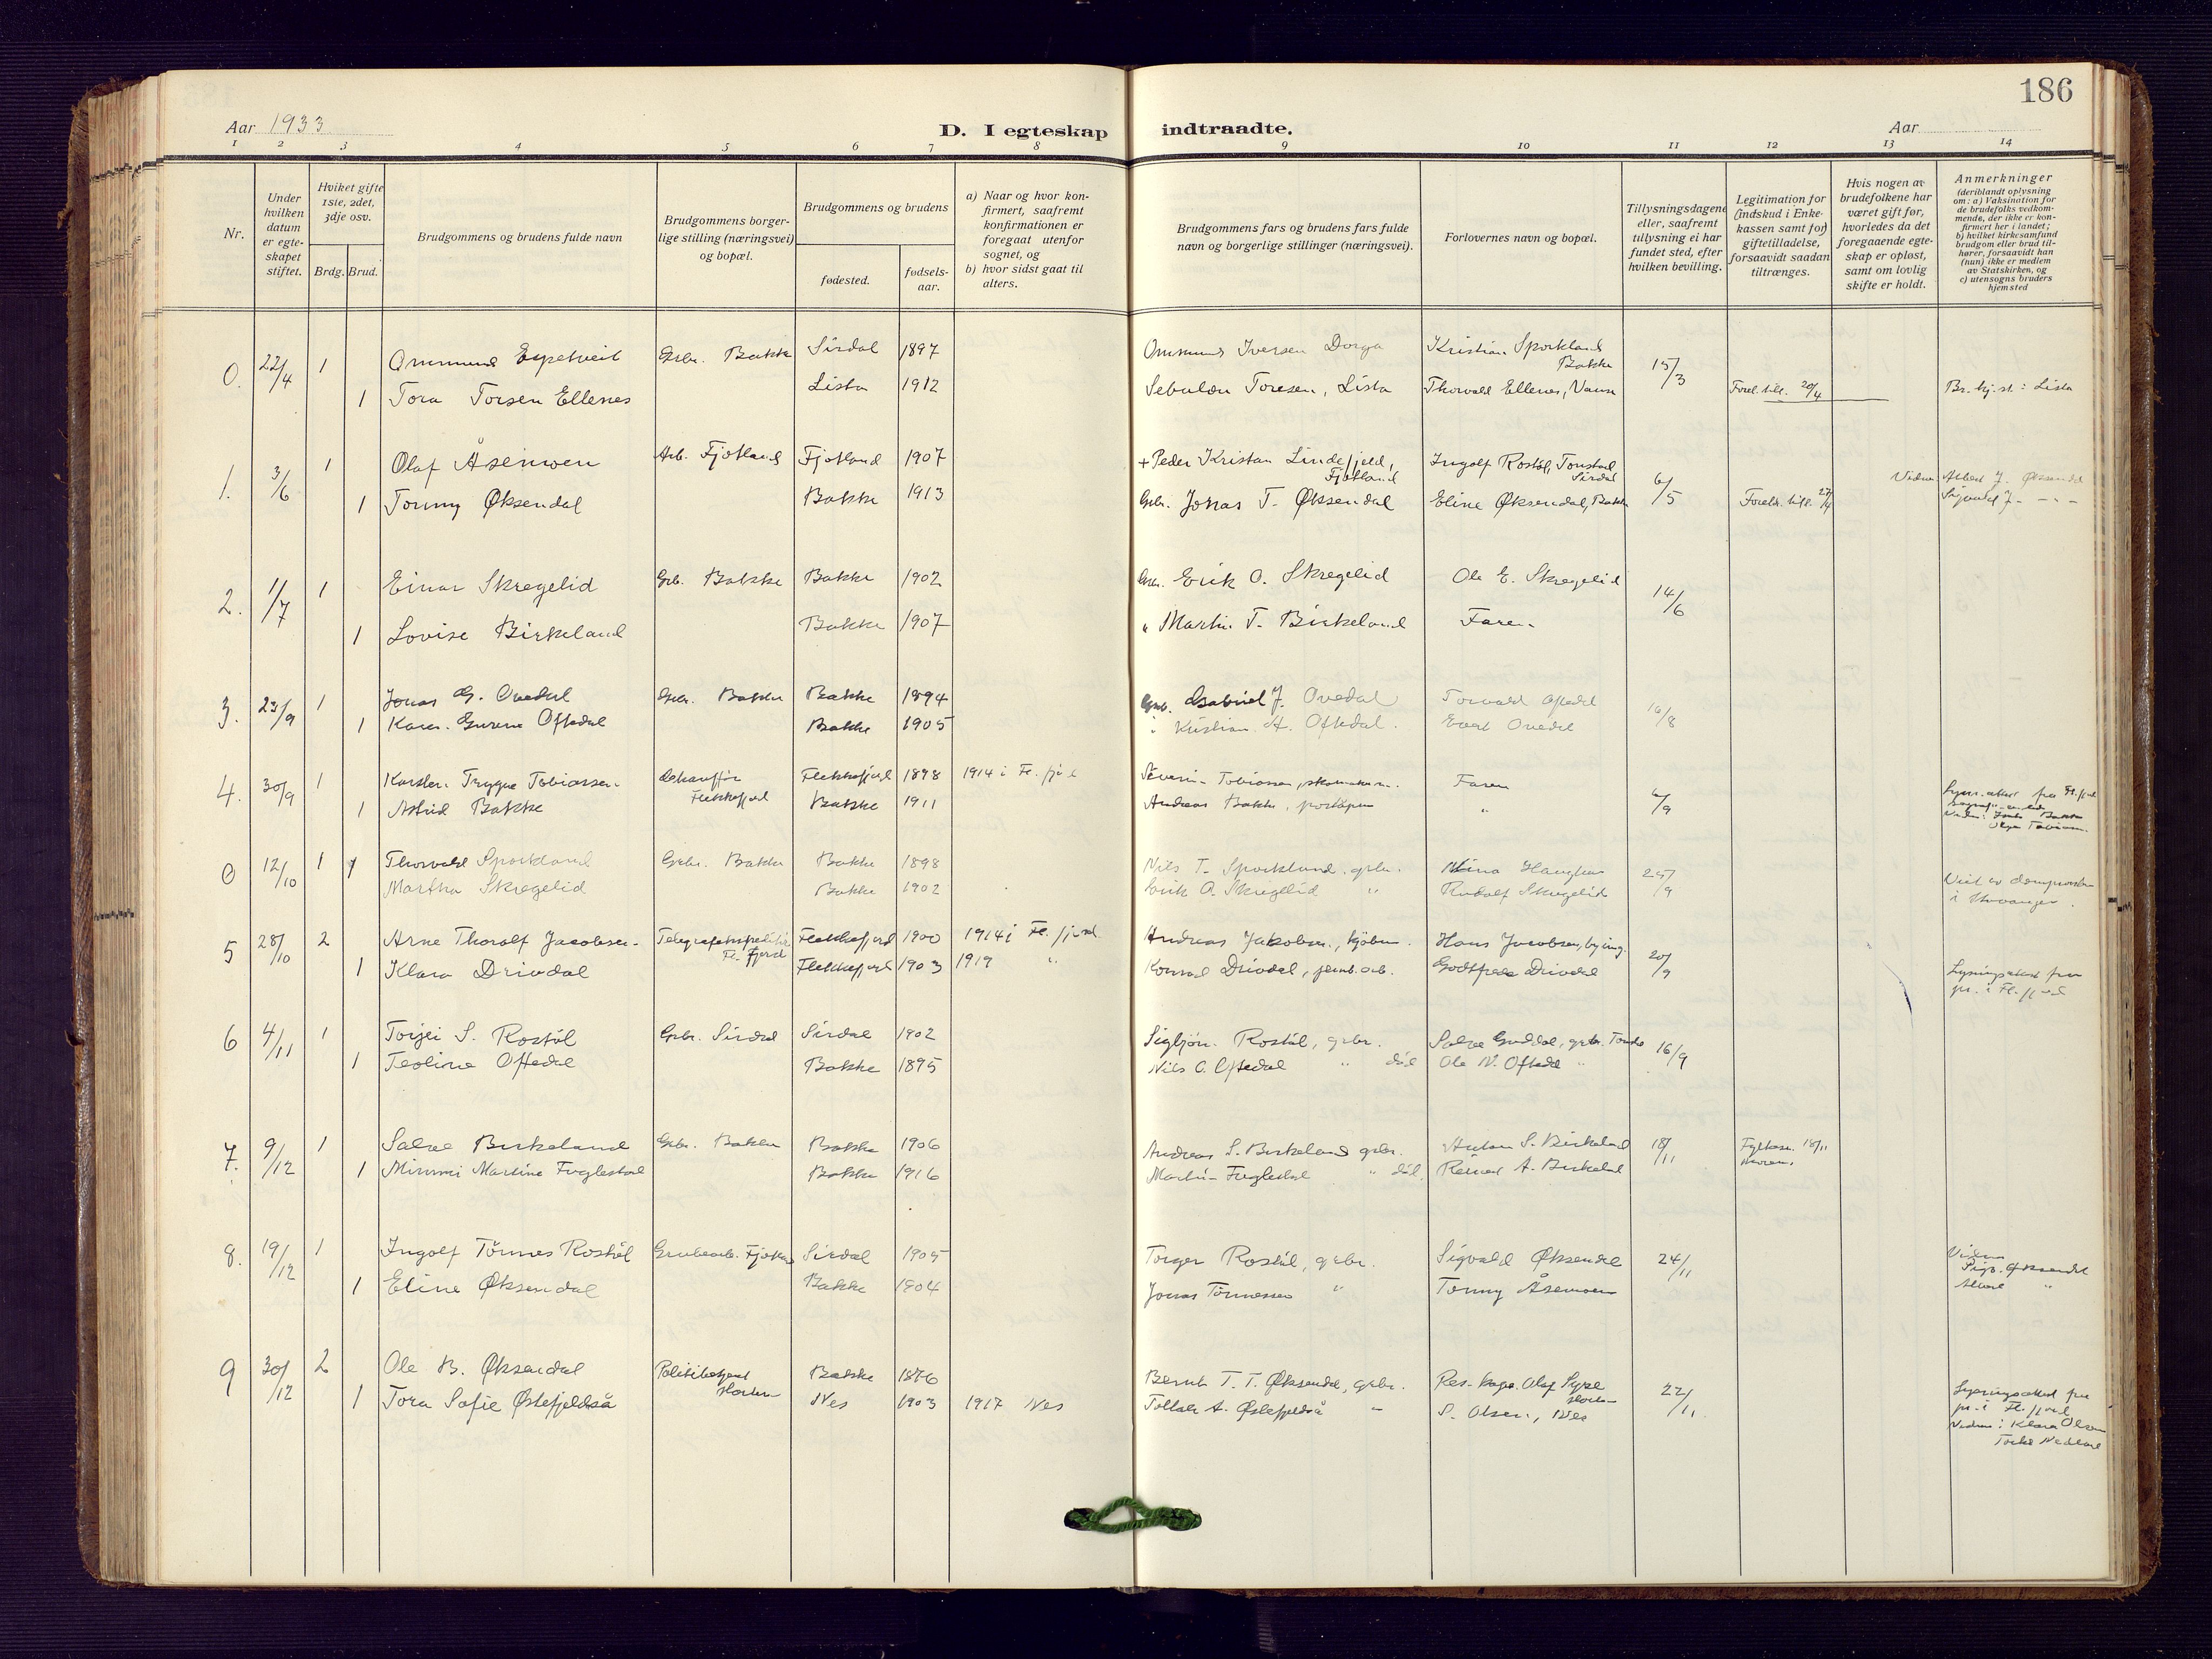 186
Aar 1933
D. I egteskap indtraadte.
Aar
1 2 3 4 5 6 7 8 9 10 11 12 13 14
Nr.
Under hvilken datum er egteskapet stiftet.
Hviket gifte 1ste, 2det, 3dje osv.
Brdg. Brud.
Brudgommens og brudens fulde navn
Brudgommens borgerlige stilling (næringsvei) og bopæl.
Brudgommens og brudens
fødested.
fødselsaar.
a) Naar og hvor konfirmert, saafremt konfirmationen er foregaat utenfor sognet, og
b) hvor sidst gaat til alters.
Brudgommens fars og brudens fars fulde navn og borgerlige stillinger (næringsvei).
Forlovernes navn og bopæl.
Tillysningsdagene eller, saafremt tillysning ei har fundet sted, efter hvilken bevilling.
Legitimation for (indskud i Enkekassen samt for) giftetilladelse, forsaavidt saadan tiltrænges.
Hvis nogen av brudefolkene har været gift før, hvorledes da det foregaaende egteskap er opløst, samt om lovlig skifte er holdt.
Anmerkninger
(deriblandt oplysning om: a) Vaksination for de brudefolks vedkommende, der ikke er konfirmert her i landet;
b) hvilket kirkesamfund brudgom eller brud tilhører, forsaavidt han (hun) ikke er medlem av Statskirken, og
c) utensogns bruders hjemsted
0. 22/4 1 Ommund Espetveit Grbr. Bakke Sirdal 1897 Ommund Iversen Dorga Kristian Sporkland Bakke 15/3
1 Tora Torsen Ellenes Lista 1912 Sebulon Toresen, Lista Thorvald Ellenes, Vanse Forel. till. 20/4 Br. hj. st: Lista
1. 3/6 1 Olaf Åsenwen Arb. Fjotland Fjotland 1907 + Peder Kristian Lindefjeld, Fjotland Ingolf Rostøl, Tonstad, Sirdal 6/5 Vidne Albert J. Øksendal
1 Tonny Øksendal Bakke 1913 Gbr. Jonas T. Øksendal Eline Øksendal, Bakke Foreld. till. 27/4 Sigvald J. - - -
2. 1/7 1 Einar Skregelid Grb. Bakke Bakke 1902 Grbr. Erik O. Skregelid Ole E. Skregelid 14/6
1 Lovise Birkeland Bakke 1907 " Martin T. Birkeland Faren
3. 23/9 1 Jonas G. Ovedal Gbr. Bakke Bakke 1894 Grb. Gabriel J. Ovedal Torvald Oftedal 16/8
1 Karen Gurine Oftedal Bakke 1905 " Kristian A. Oftedal. Evert Ovedal
4. 30/9 1 Karsten Trygve Tobiassen Flekkefjord Flekkefjord 1898 1914 i Fl. fjord Severin Tobiassen, skomaker Faren 6/9
1 Astrid Bakke Bakke 1911 Andreas Bakke, "
0 12/10 1 1 Thorvald Sporkland Grbr. Bakke Bakke 1898 Nils T. Sporkland. grbr. 25/9
Martha Skregelid Bakke 1902 Erik O. Skregelid " Rudolf Skregelid Viet av domprosten i Stavanger.
5 28/10 2 Arne Thorolf Jacobsen Fl. fjord Flekkefjord 1900 1914 i Fl. fjord. Andreas Jakobsen, kjøbm. Hans Jacobsen, bying. 20/9
1 Klara Drivdal Flekkefjord 1903 1919 " Konrad Drivdal, jernb. arb. Godtfred Drivdal Lysningsattest fra pr. i Fl. fjord
6 4/11 1 Torjei S. Rostøl Grbr. Sirdal Sirdal 1902 Sigbjørn Rostøl, grbr. Salve Guddal, grbr. 16/9
1 Teoline Oftedal Bakke 1895 Nils O. Oftedal " død Ole N. Oftedal "
7. 9/12 1 Salve Birkeland Gbr. Bakke Bakke 1906 Andreas S. Birkeland grbr. Anton S. Birkeland 18/11 18/11
1 Mimmi Martine Fuglestad Bakke 1916 Martin Fuglestad " død. Reinert A. Birkeland
8. 19/12 1 Ingolf Tønnes Rostøl Grubearb. Fjotland Sirdal 1905 Torger Rostøl, grbr. Sigvald Øksendal 24/11 Vidne Sigv. Øksendal
1 Eline Øksendal Bakke 1904 Jonas Tønnessen " Tonny Åsenwen Albert "
9 30/12 2 Ole B. Øksendal Politibetjent Horten Bakke 1876 Bernt T. T. Øksendal, grbr. Res. kap. Olaf Syre Horten 22/11 Lysningsattest fra pr. i Fl. fjord
1 Tora Sofie Østefjeldså Nes 1903 1917 Nes Tollak A. Østefjeldså " S. Olsen, Nes Vidne: Klara Olsen